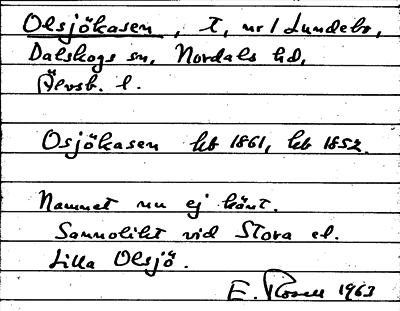 Olsjökasen, t, nr 1 Lundebo,
Dalskogs sn, Nordals hd,
Älvsb. l.
Osjökasen kb 1861, kb 1852.
Namnet nu ej känt.
Sannolikt vid Stora el.
Lilla Olsjö.
E. Rosell 1963